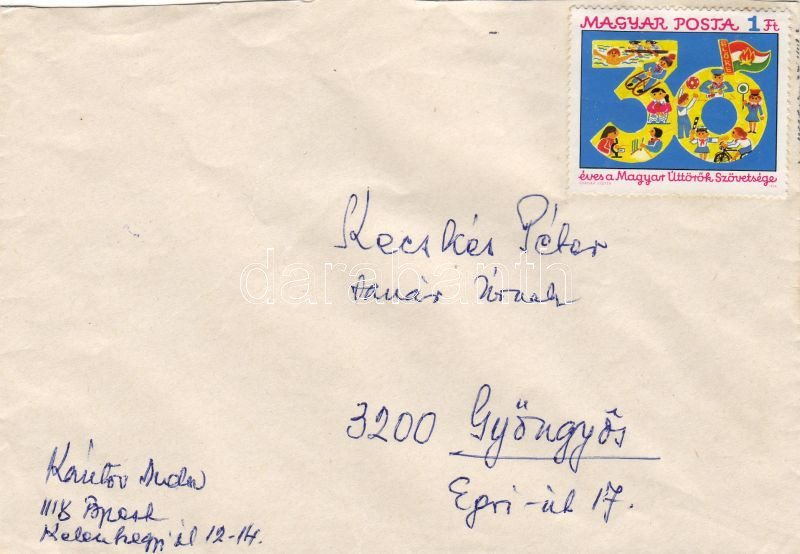 MAGYAR POSTA 1 Ft
30
ELŐRE
éves a Magyar Úttörők Szövetsége
Kecskés Péter
tanár Úrnak
darabanth
3200 Gyöngyös
Egri-út 17.
Kántor
1118 Bpest
Kelenhegyi út 12-14.